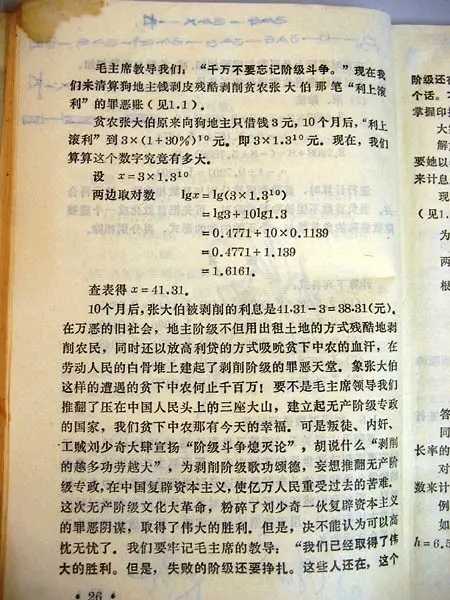 毛主席教导我们：“千万不要忘记阶级斗争。”现在我
们来清算狗地主钱剥皮残酷剥削贫农张大伯那笔“利上滚
利”的罪恶账（见1.1）。
贫农张大伯原来向狗地主只借钱3元，10个月后，“利上
滚利”到3×(1+30%)¹⁰元。即3×1.3¹⁰元。现在，我们
算算这个数字究竟有多大。
设　x=3×1.3¹⁰
两边取对数　lgx=lg(3×1.3¹⁰)
=lg3+10lg1.3
=0.4771+10×0.1139
=0.4771+1.139
=1.6161。
查表得 x=41.31。
10个月后，张大伯被剥削的利息是41.31－3=38.31(元)。
在万恶的旧社会，地主阶级不但用出租土地的方式残酷地剥
削农民，同时还以放高利贷的方式吸吮贫下中农的血汗，在
劳动人民的白骨堆上建起了剥削阶级的罪恶天堂。象张大伯
这样的遭遇的贫下中农何止千百万！要不是毛主席领导我们
推翻了压在中国人民头上的三座大山，建立起无产阶级专政
的国家，我们贫下中农那有今天的幸福。可是叛徒、内奸、
工贼刘少奇大肆宣扬“阶级斗争熄灭论”，胡说什么“剥削
的越多功劳越大”，为剥削阶级歌功颂德，妄想推翻无产阶
级专政，在中国复辟资本主义，使亿万人民重受过去的苦难。
这次无产阶级文化大革命，粉碎了刘少奇一伙复辟资本主义
的罪恶阴谋，取得了伟大的胜利。但是，决不能认为可以高
枕无忧了。我们要牢记毛主席的教导：“我们已经取得了伟
大的胜利。但是，失败的阶级还要挣扎。这些人还在，这个
·26·
阶级还在
个话。
掌握印
大
解
要她以
来计息
现
(见1.
为
两
根
答
同
长率的
对
数来计
例
如
h=6.5